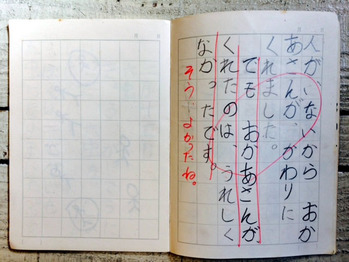 人がいないから　おか
あさんが、かわりに
くれました。
でも　おかあさんが
くれたのは、うれしく
なかったです。
そう、よかったね。